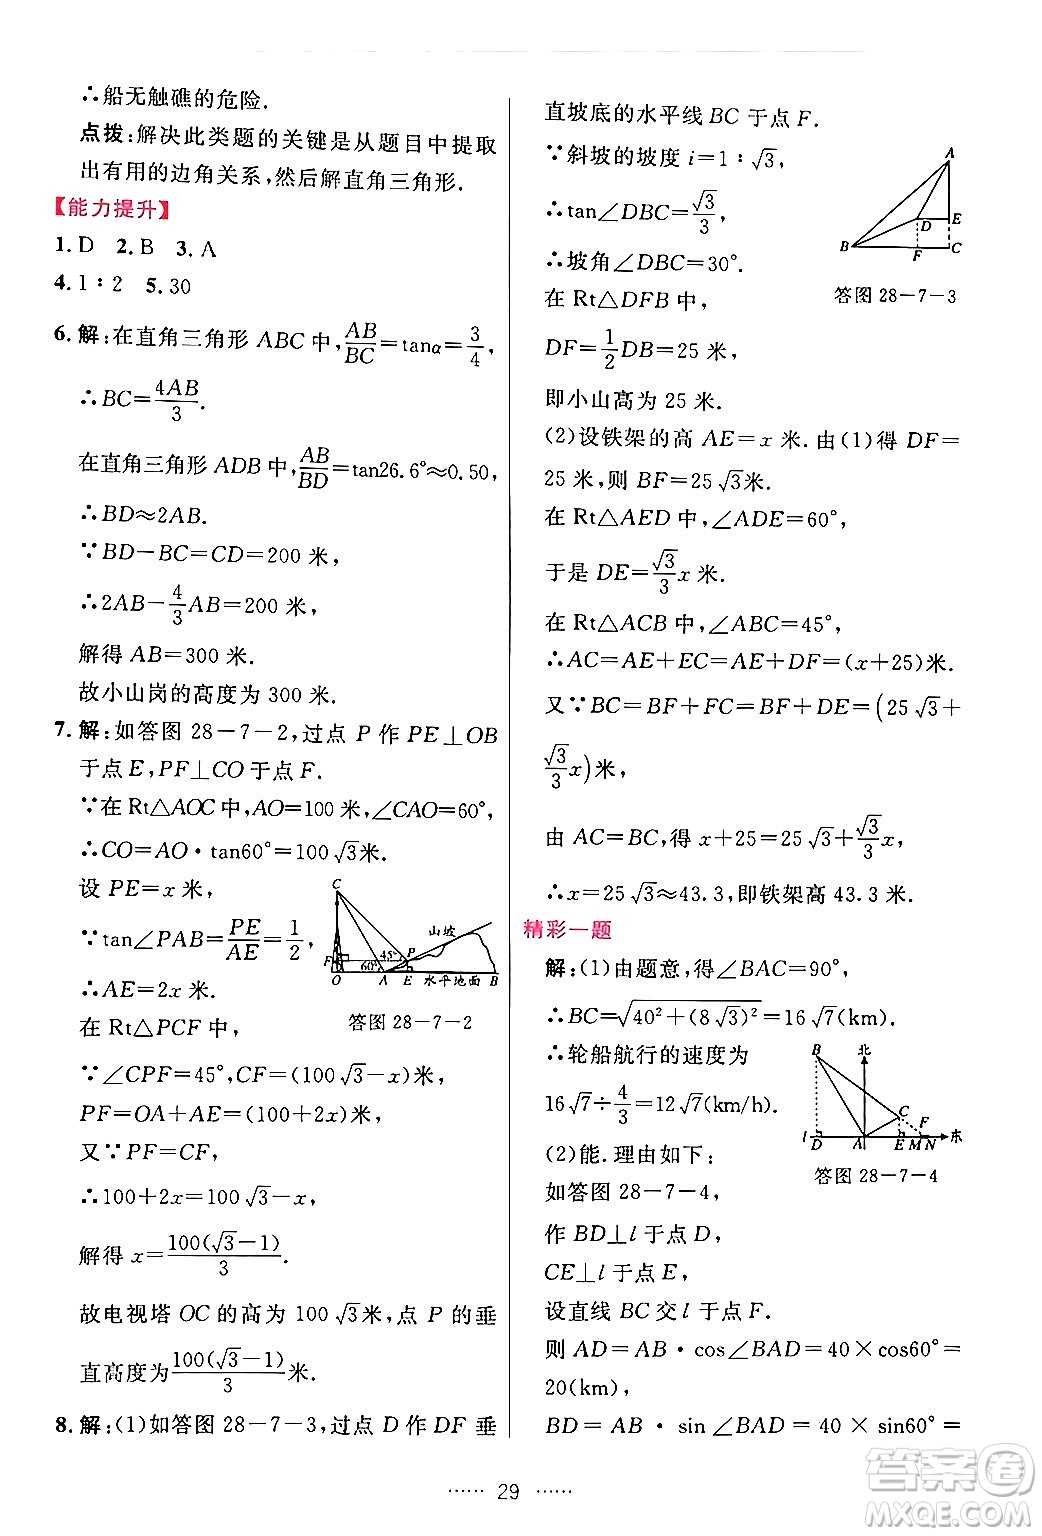 ∴船无触礁的危险.
点拨:解决此类题的关键是从题目中提取
出有用的边角关系,然后解直角三角形.
【能力提升】
1.D 2.B 3.A
4.1∶2 5.30
6.解:在直角三角形 ABC 中,AB/BC=tanα=3/4,
∴BC=4AB/3.
在直角三角形 ADB 中,AB/BD=tan26.6°≈0.50,
∴BD≈2AB.
∵BD-BC=CD=200 米,
∴2AB-4/3AB=200 米,
解得 AB=300 米.
故小山岗的高度为 300 米.
7.解:如答图 28-7-2,过点 P 作 PE⊥OB
于点 E,PF⊥CO 于点 F.
∵在 Rt△AOC 中,AO=100 米,∠CAO=60°,
∴CO=AO·tan60°=100√3米.
设 PE=x 米,
∵tan∠PAB=PE/AE=1/2,
∴AE=2x 米.
在 Rt△PCF 中,
∵∠CPF=45°,CF=(100√3-x)米,
PF=OA+AE=(100+2x)米,
又∵PF=CF,
∴100+2x=100√3-x,
解得 x=100(√3-1)/3.
故电视塔 OC 的高为 100√3米,点 P 的垂
直高度为100(√3-1)/3米.
8.解:(1)如答图 28-7-3,过点 D 作 DF 垂
C
山坡
45°
P
F
60°
O A E 水平地面 B
答图 28-7-2
直坡底的水平线 BC 于点 F.
∵斜坡的坡度 i=1∶√3,
∴tan∠DBC=√3/3,
∴坡角∠DBC=30°.
在 Rt△DFB 中,
DF=1/2DB=25 米,
即小山高为 25 米.
(2)设铁架的高 AE=x 米.由(1)得 DF=
25 米,则 BF=25√3米.
在 Rt△AED 中,∠ADE=60°,
于是 DE=√3/3x 米.
在 Rt△ACB 中,∠ABC=45°,
∴AC=AE+EC=AE+DF=(x+25)米.
又∵BC=BF+FC=BF+DE=(25√3+
√3/3x)米,
由 AC=BC,得 x+25=25√3+√3/3x,
∴x=25√3≈43.3,即铁架高 43.3 米.
A
D E
B F C
答图 28-7-3
精彩一题
解:(1)由题意,得∠BAC=90°,
∴BC=√(40²+(8√3)²)=16√7(km).
∴轮船航行的速度为
16√7÷4/3=12√7(km/h).
(2)能.理由如下:
如答图 28-7-4,
作 BD⊥l 于点 D,
CE⊥l 于点 E,
设直线 BC 交 l 于点 F.
则 AD=AB·cos∠BAD=40×cos60°=
20(km),
BD=AB·sin∠BAD=40×sin60°=
B 北
C
F
l 东
D A E M N
答图 28-7-4
…… 29 ……
答案卷
MXQE.COM